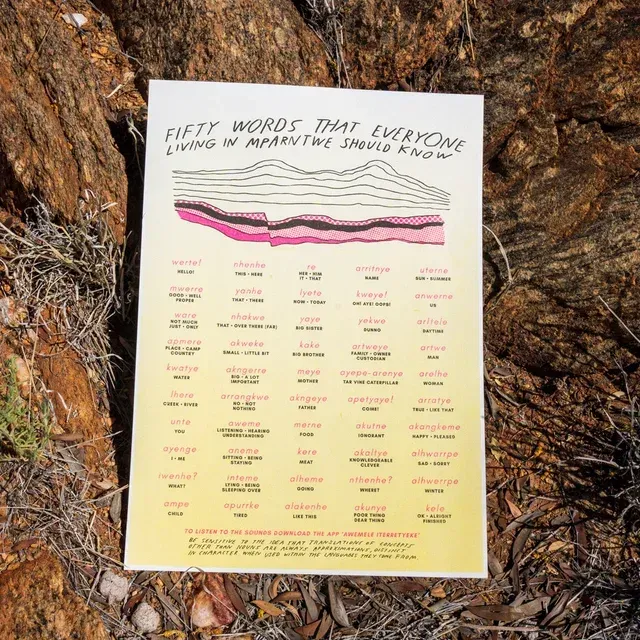 FIFTY WORDS THAT EVERYONE
LIVING IN MPARNTWE SHOULD KNOW
werte!
HELLO!
nhenhe
THIS • HERE
re
HER • HIM
IT • THAT
arritnye
NAME
uterne
SUN • SUMMER
mwerre
GOOD • WELL
PROPER
yanhe
THAT • THERE
lyete
NOW • TODAY
kweye!
OH! AYE! OOPS!
anwerne
US
ware
NOT MUCH
JUST • ONLY
nhakwe
THAT • OVER THERE (FAR)
yaye
BIG SISTER
yekwe
DUNNO
arlteie
DAYTIME
apmere
PLACE • CAMP
COUNTRY
akweke
SMALL • LITTLE BIT
kake
BIG BROTHER
artweye
FAMILY • OWNER
CUSTODIAN
artwe
MAN
kwatye
WATER
akngerre
BIG • A LOT
IMPORTANT
meye
MOTHER
ayepe-arenye
TAR VINE CATERPILLAR
arelhe
WOMAN
lhere
CREEK • RIVER
arrangkwe
NO • NOT
NOTHING
akngeye
FATHER
apetyaye!
COME!
arratye
TRUE • LIKE THAT
unte
YOU
aweme
LISTENING • HEARING
UNDERSTANDING
merne
FOOD
akutne
IGNORANT
akangkeme
HAPPY • PLEASED
ayenge
I • ME
aneme
SITTING • BEING
STAYING
kere
MEAT
akaltye
KNOWLEDGEABLE
CLEVER
alhwarrpe
SAD • SORRY
iwenhe?
WHAT?
inteme
LYING • BEING
SLEEPING OVER
alheme
GOING
nthenhe?
WHERE?
alhwerrpe
WINTER
ampe
CHILD
apurrke
TIRED
alakenhe
LIKE THIS
akunye
POOR THING
DEAR THING
kele
OK • ALRIGHT
FINISHED
TO LISTEN TO THE SOUNDS DOWNLOAD THE APP "AWEMELE ITERRETYEKE"
BE SENSITIVE TO THE IDEA THAT TRANSLATIONS OF CONCEPTS
OTHER THAN NOUNS ARE ALWAYS APPROXIMATIONS, DISTINCT
IN CHARACTER WHEN USED WITHIN THE LANGUAGES THEY COME FROM.